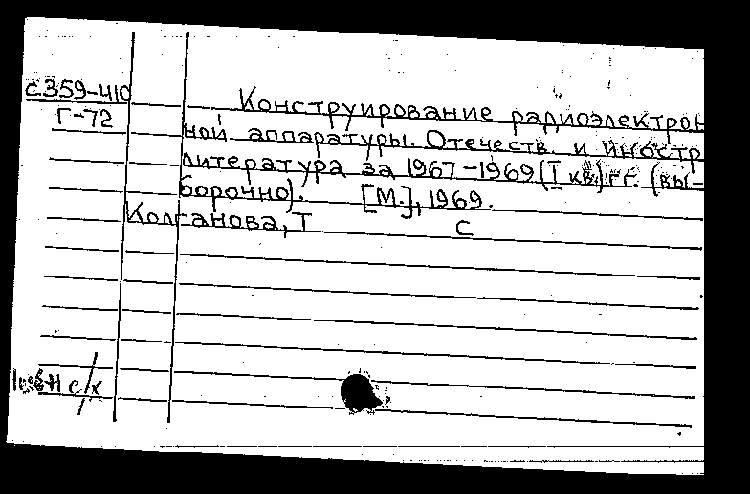 С359-410
Г-72
Конструирование радиоэлектрон
ной аппаратуры. Отечеств. и иностр
литература за 1967-1969 (I кв.) гг. (вы-
борочно). [М.], 1969.
Колганова, Т С
с/х